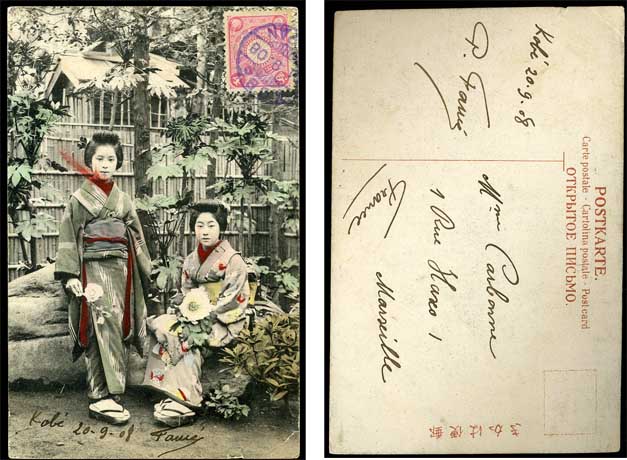 Kobé 20-9-08
Kobé 20.9.08
Mme Carbonne
1 Rue Haxo 1
Marseille
France
POSTKARTE.
ОТКРЫТОЕ ПИСЬМО.
Carte postale - Cartolina postale - Post card
郵便はかき